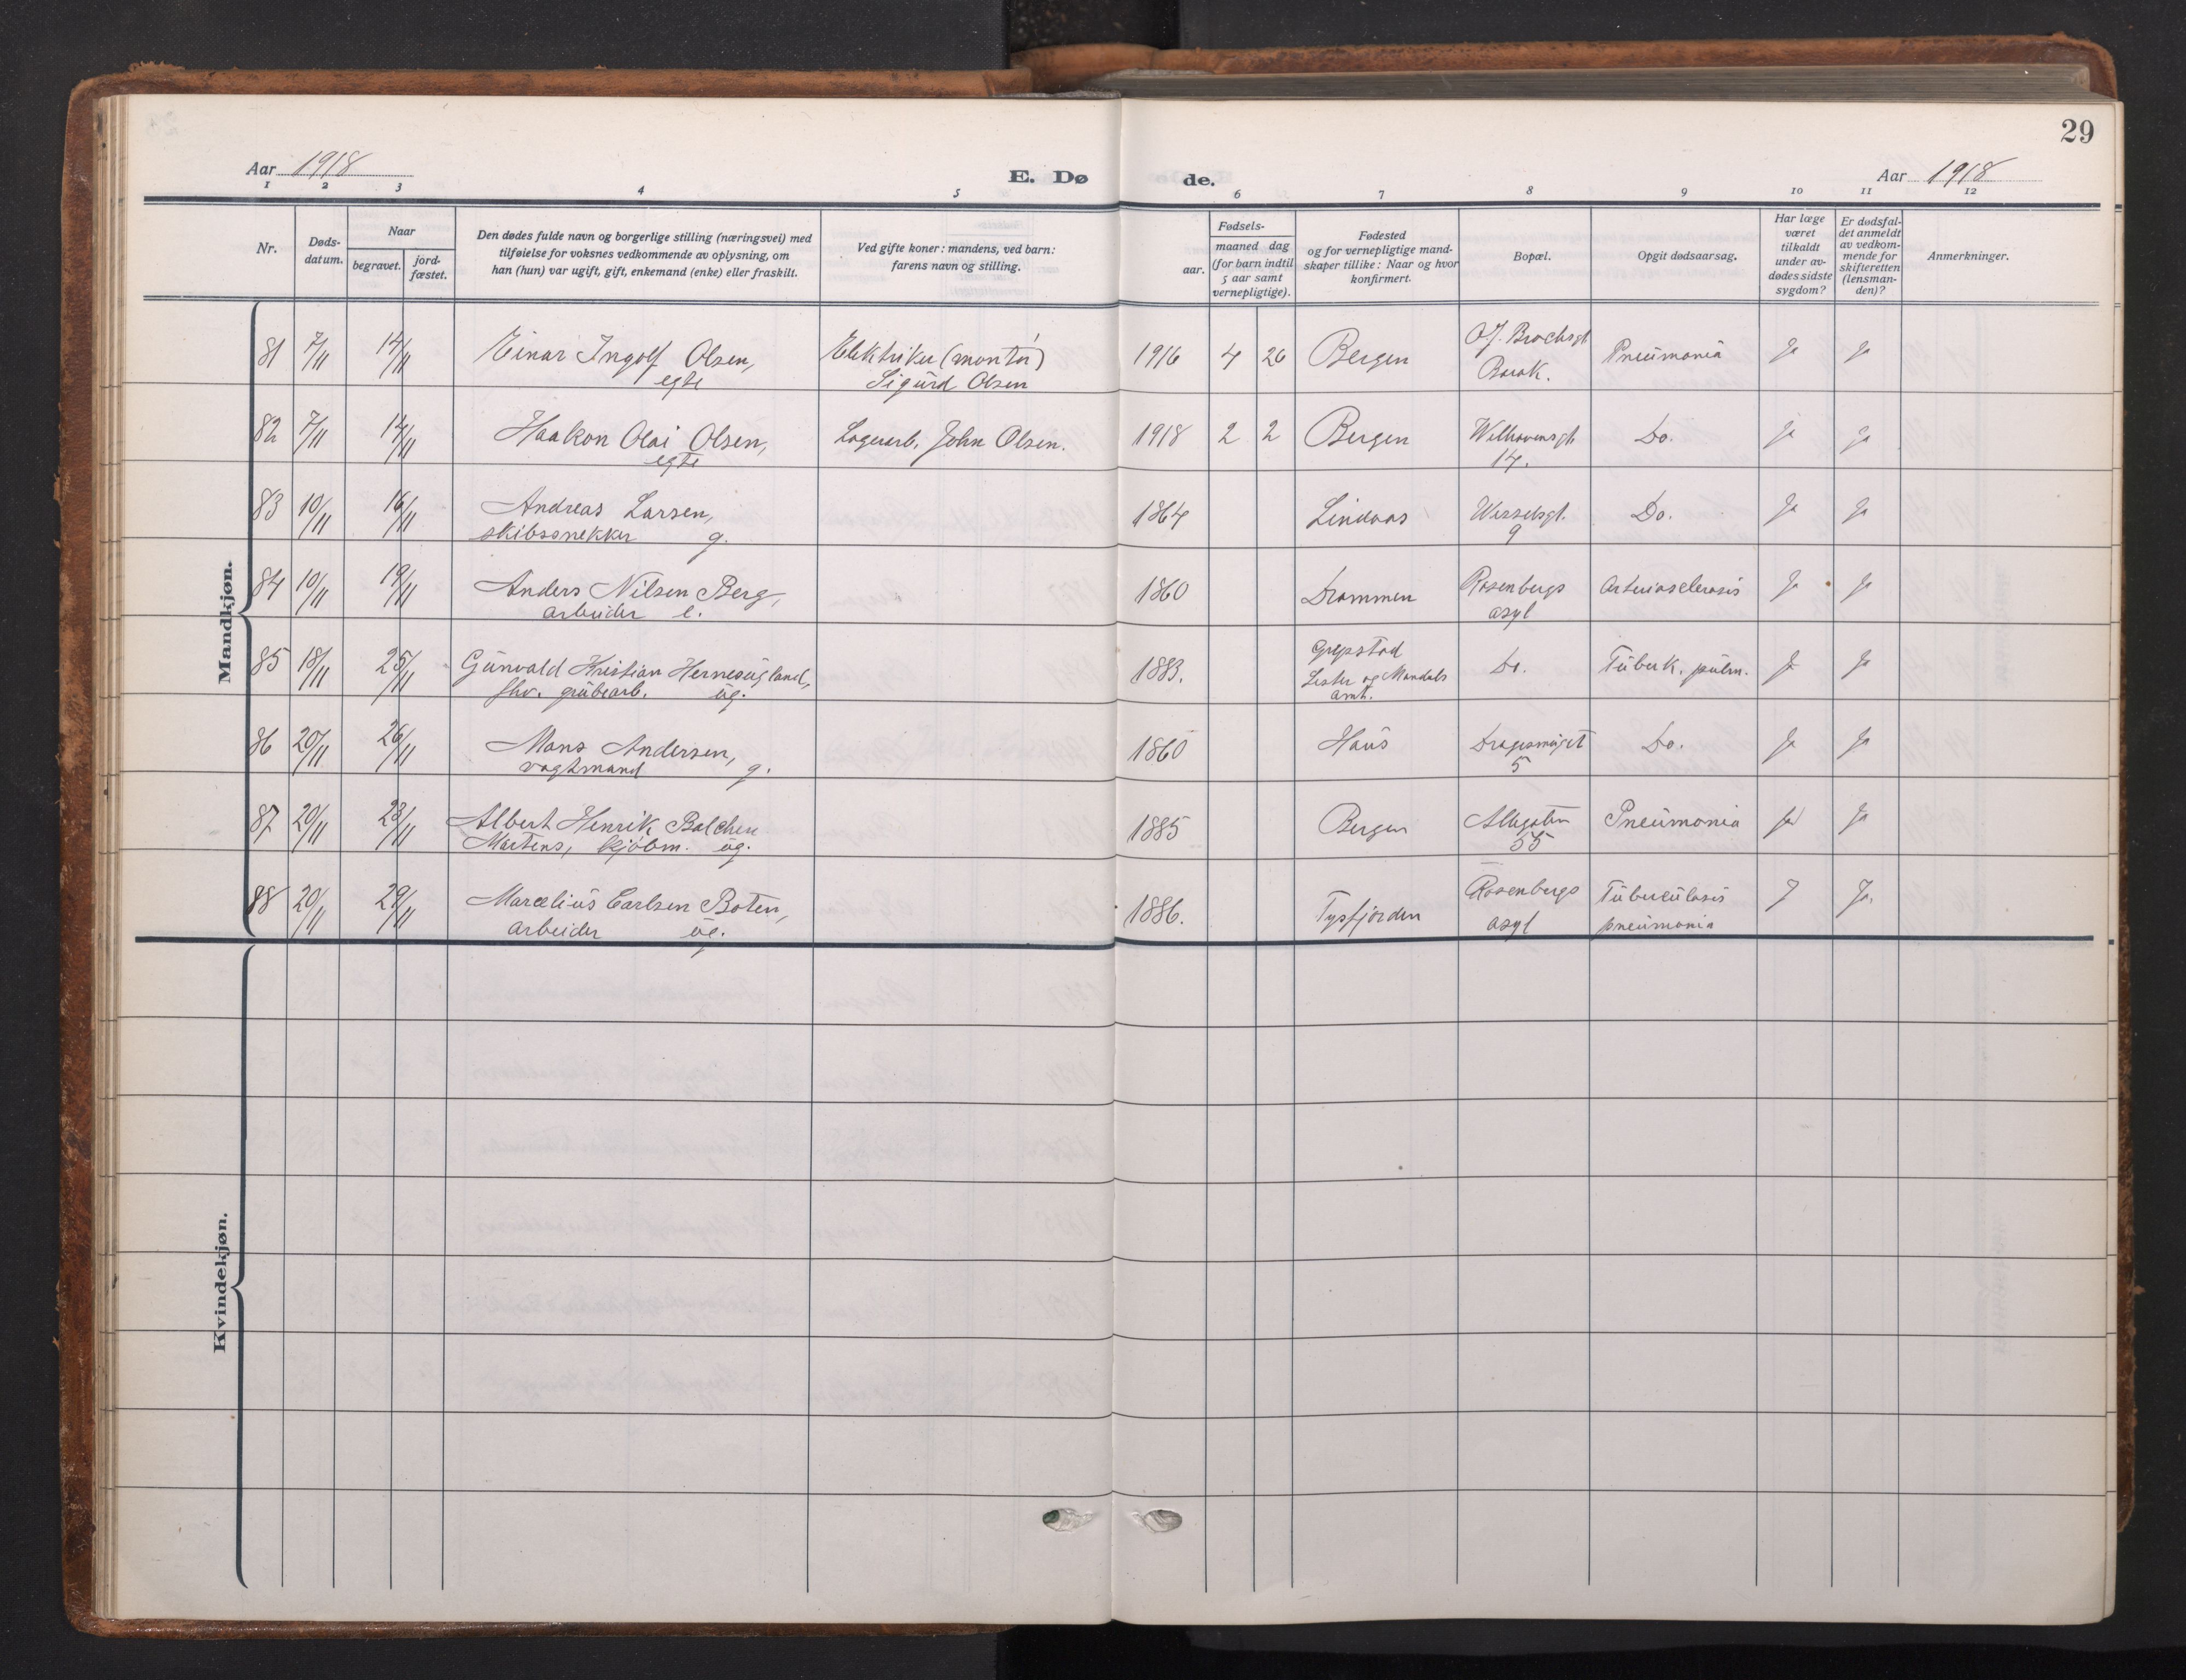 29
Aar 1918
E. Dø
de.
Aar 1918
1 2 3 4 5 6 7 8 9 10 11 12
Nr.
Døds-
datum.
Naar
begravet.
jord-
fæstet.
Den dødes fulde navn og borgerlige stilling (næringsvei) med
tilføielse for voksnes vedkommende av oplysning, om
han (hun) var ugift, gift, enkemand (enke) eller fraskilt.
Ved gifte koner: mandens, ved barn:
farens navn og stilling.
Fødsels-
aar.
maaned dag
(for barn indtil
5 aar samt
vernepligtige).
Fødested
og for vernepligtige mand-
skaper tillike: Naar og hvor
konfirmert.
Bopæl.
Opgit dødsaarsag.
Har læge
været
tilkaldt
under av-
dødes sidste
sygdom?
Er dødsfal-
det anmeldt
av vedkom-
mende for
skifteretten
(lensman-
den)?
Anmerkninger.
Mandkjøn.
81 7/11 14/11 Einar Ingolf Olsen, Elektriker (montør) 1916 4 26 Bergen O.J. Brochsgt Pneumonia Ja Ja
egte Sigurd Olsen Barak.
82 7/11 14/11 Haakon Olai Olsen, Lagerarb. John Olsen. 1918 2 2 Bergen Welhavensgt. Do. Ja Ja
egte 14.
83 10/11 16/11 Andreas Larsen, 1864 Lindaas Wesselsgt. Do. Ja Ja
skibssnekker g. 9
84 10/11 19/11 Anders Nilsen Berg, 1860 Drammen Rosenbergs Arteriosclerosis Ja Ja
arbeider e. asyl
85 18/11 25/11 Gunvald Kristian Hernesugland, 1883. Grepstad Do. Tuberk. pulm. Ja Ja
fhv. grubearb. ug. Lister og Mandals
amt.
86 20/11 26/11 Mons Andersen, 1860 Haus Dragesmuget Do. Ja Ja
vagtmand g. 5
87 20/11 23/11 Albert Henrik Balchen 1885 Bergen Allegaten Pneumonia Ja Ja
Martens, kjøbm. ug. 55
88 20/11 29/11 Marcelius Carlsen Boten, 1886. Tysfjorden Rosenbergs Tuberculosis J Ja.
arbeider ug. asyl pneumonia
Kvindekjøn.